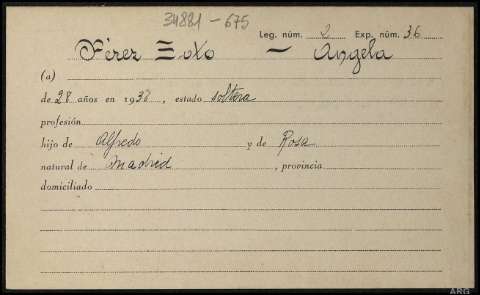 34881-675
Leg. núm. 2 Exp. núm. 36
Pérez Soto - Angela
(a)
de 28 años en 1938, estado soltera
profesión
hijo de Alfredo y de Rosa
natural de Madrid, provincia
domiciliado
ARG